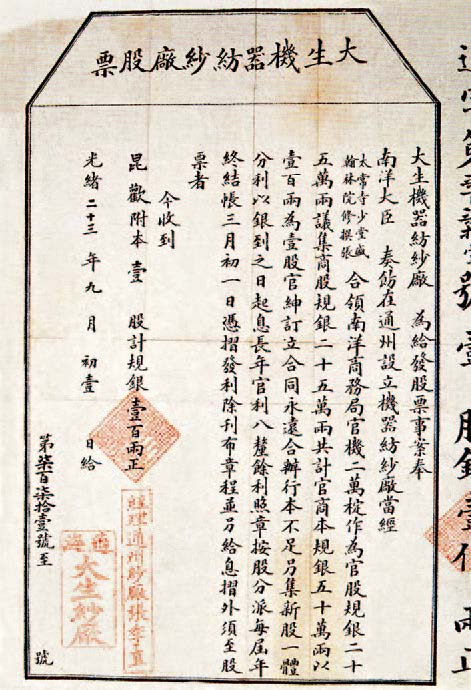 大生機器紡紗廠股票
大生機器紡紗廠 為給發股票事案奉
南洋大臣 奏飭在通州設立機器紡紗廠當經
太常寺少堂盛
翰林院修撰張
合領南洋商務局官機二萬椗作為官股規銀二十
五萬兩議集商股規銀二十五萬兩共計官商本規銀五十萬兩以
壹百兩為壹股官紳訂立合同永遠合辦行本不足另集新股一體
分利以銀到之日起息長年官利八釐餘利照章按股分派每屆年
終結帳三月初一日憑摺發利除刊布章程並另給息摺外須至股
票者
今收到
昆歡附本 壹 股計規銀壹百兩正
經理通州紗廠張季直
光緒二十三年九月初壹日給
通海
大生紗廠
第柒百柒拾壹號至 號